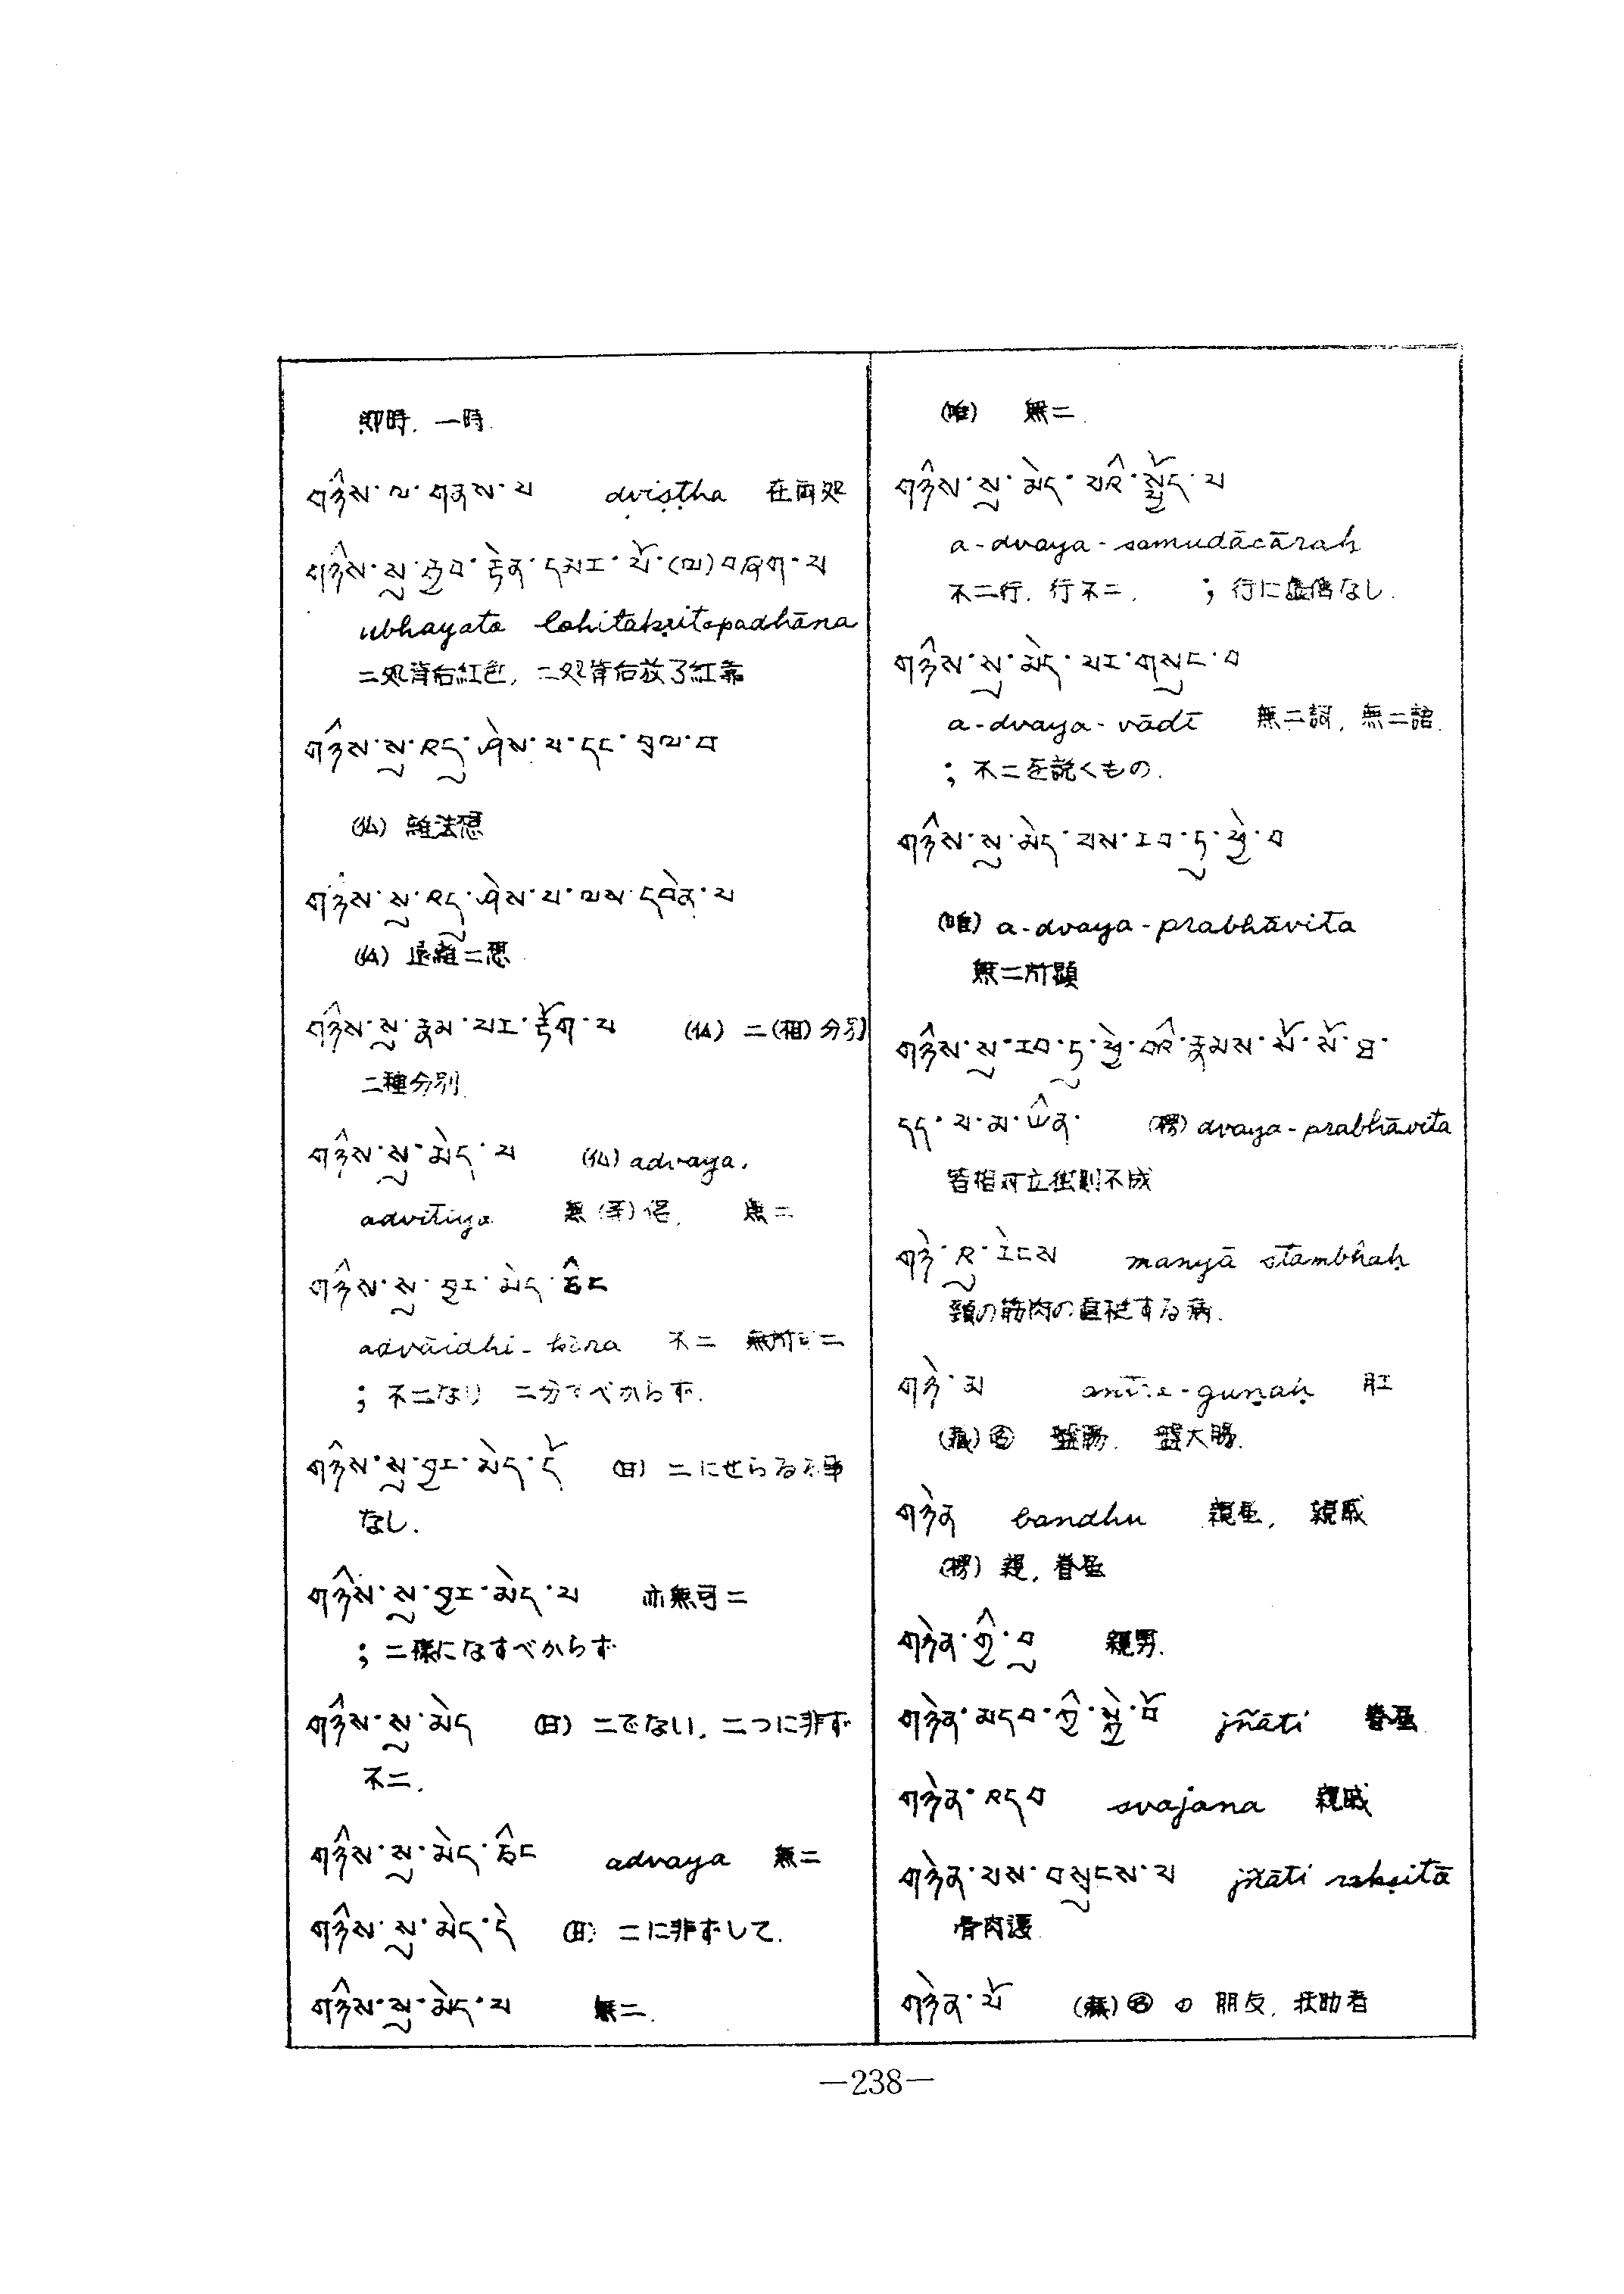 即時. 一時.
གཉིས་ལ་གནས་པ dviṣṭha 在両処
གཉིས་སུ་རྒྱབ་རྟེན་དམར་པོ་(ལ)བཞག་པ
ubhayato lohitakṛitopadhāna
二処背后紅色, 二処背后放了紅靠
གཉིས་སུ་འདུ་ཤེས་པ་དང་བྲལ་བ
(仏) 離法想
གཉིས་སུ་འདུ་ཤེས་པ་ལས་དབེན་པ
(仏) 遠離二想
གཉིས་སུ་རྣམ་པར་རྟོག་པ (仏) 二(相)分別
二種分別.
གཉིས་སུ་མེད་པ (仏) advaya,
advitīya 無 無二
གཉིས་སུ་བྱར་མེད་ཅིང
advaidhi-kāra 不二 無所二
; 不二なり 二分すべからず.
གཉིས་སུ་བྱར་མེད་དོ (日) 二にせらるる事
なし.
གཉིས་སུ་བྱར་མེད་པ 亦無可二
; 二様になすべからず
གཉིས་སུ་མེད (日) 二でない, 二つに非ず
不二.
གཉིས་སུ་མེད་ཅིང advaya 無二
གཉིས་སུ་མེད་དེ (日) 二に非ずして.
གཉིས་སུ་མེད་པ 無二.
(唯) 無二.
གཉིས་སུ་མེད་པའི་སྤྱོད་པ
a-dvaya-samudācāraḥ
不二行. 行不二. ; 行に虚偽なし.
གཉིས་སུ་མེད་པར་གསུང་བ
a-dvaya-vādī 無二詞, 無二語.
; 不二を説くもの.
གཉིས་སུ་མེད་པས་རབ་ཏུ་ཕྱེ་བ
(唯) a-dvaya-prabhāvita
無二所顕
གཉིས་སུ་རབ་ཏུ་ཕྱེ་བའི་རྣམས་སོ་སོ་ཐ་
དད་པ་མ་ཡིན་ (楞) dvaya-prabhāvita
皆相対立衝則不成
གཉེ་འུ་རེངས manyā stambhaḥ
頸の筋肉の直挺する病.
གཉེ་མ antra-guṇaḥ 肛
(蔵) 盤腸. 盤大腸.
གཉེན bandhu 親属, 親戚
(楞) 親, 眷属
གཉེན་གྱི་བུ 親男.
གཉེན་མདབ་ཀྱི་སྐྱེ་བོ jñāti 眷属
གཉེན་འདབ svajana 親戚
གཉེན་པས་བསྲུངས་པ jñāti rakṣitā
骨肉護.
གཉེན་པོ (蔵) 朋友, 扶助者
—238—